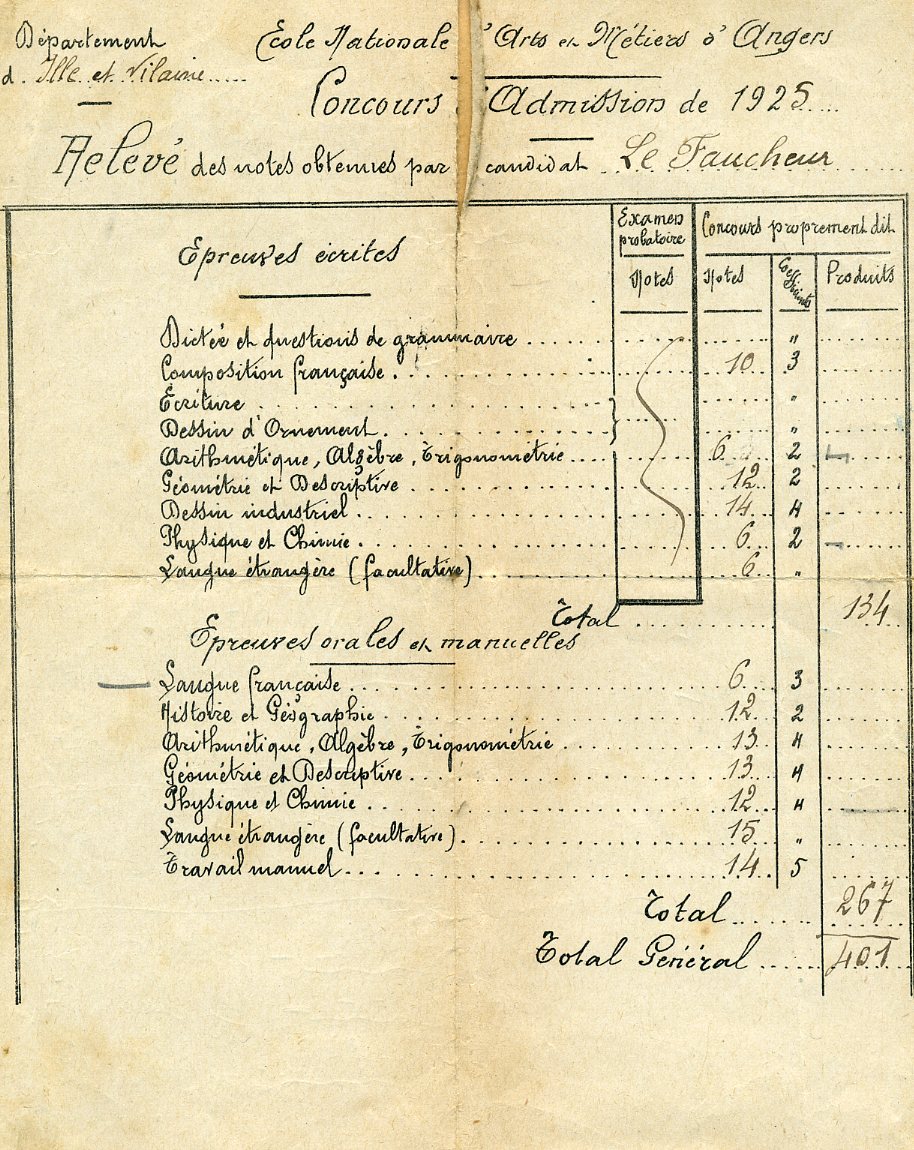 Département
d. Ille et Vilaine
Ecole Nationale d'Arts et Métiers d'Angers
Concours d'Admission de 1925
Relevé des notes obtenues par candidat Le Faucheur
Epreuves écrites
Examen probatoire
Concours proprement dit
Notes Notes Coefficients Produits
Dictée et questions de grammaire "
Composition française 10 3
Ecriture "
Dessin d'Ornement "
Arithmétique, Algèbre, Trigonométrie 6 2
Géométrie et Descriptive 12 2
Dessin industriel 14 4
Physique et Chimie 6 2
Langue étrangère (facultative) 6 "
Total 134
Epreuves orales et manuelles
Langue française 6 3
Histoire et Géographie 12 2
Arithmétique, Algèbre, Trigonométrie 13 4
Géométrie et Descriptive 13 4
Physique et Chimie 12 4
Langue étrangère (facultative) 15 "
Travail manuel 14 5
Total 267
Total Général 401